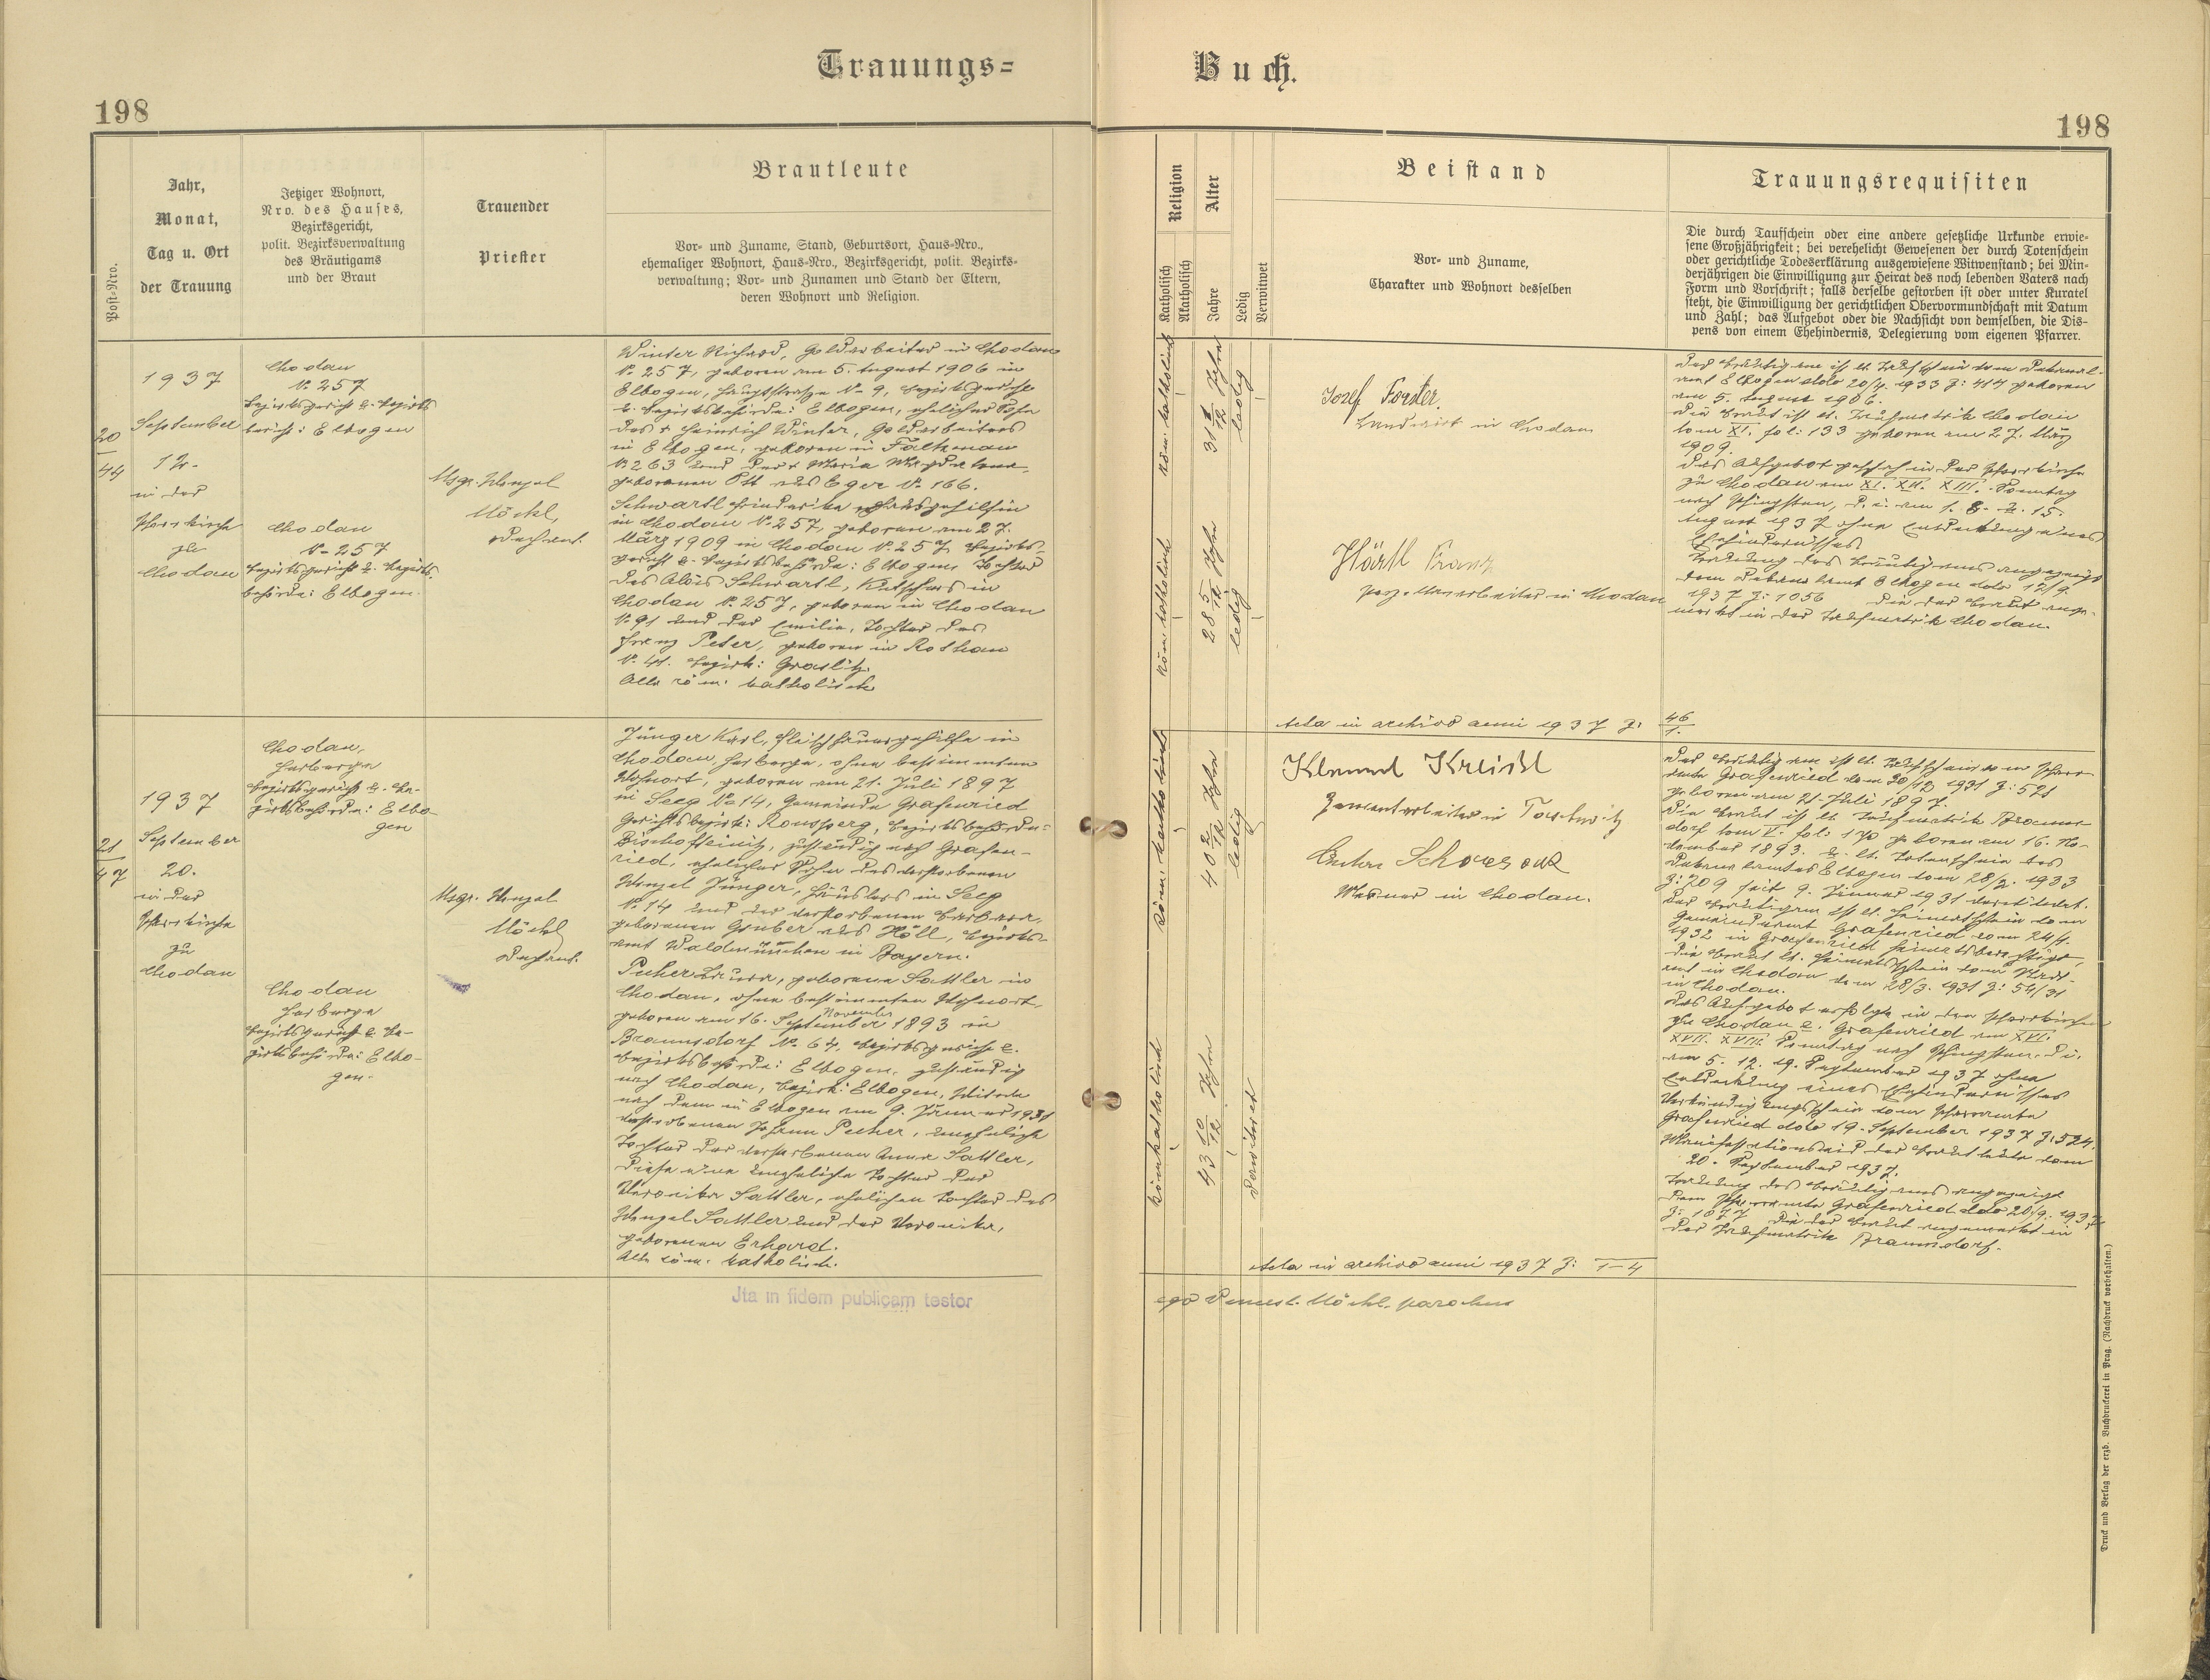 Trauungs=
Buch.
198
198
Post-Nro.
Jahr,
Monat,
Tag u. Ort
der Trauung
Jetziger Wohnort,
Nro. des Hauses,
Bezirksgericht,
polit. Bezirksverwaltung
des Bräutigams
und der Braut
Trauender
Priester
Brautleute
Vor- und Zuname, Stand, Geburtsort, Haus-Nro.,
ehemaliger Wohnort, Haus-Nro., Bezirksgericht, polit. Bezirks-
verwaltung; Vor- und Zunamen und Stand der Eltern,
deren Wohnort und Religion.
Religion
Katholisch
Akatholisch
Alter
Jahre
Ledig
Verwitwet
Beistand
Vor- und Zuname,
Charakter und Wohnort desselben
Trauungsrequisiten
Die durch Taufschein oder eine andere gesetzliche Urkunde erwie-
sene Großjährigkeit; bei verehelicht Gewesenen der durch Totenschein
oder gerichtliche Todeserklärung ausgewiesene Witwenstand; bei Min-
derjährigen die Einwilligung zur Heirat des noch lebenden Vaters nach
Form und Vorschrift; falls derselbe gestorben ist oder unter Kuratel
steht, die Einwilligung der gerichtlichen Obervormundschaft mit Datum
und Zahl; das Aufgebot oder die Nachsicht von demselben, die Dis-
pens von einem Ehehindernis, Delegierung vom eigenen Pfarrer.
20
44
1937
September
12.
in der
Pfarrkirche
zu
Chodau
Chodau
No 257
Bezirksgericht u. Bezirks
: Elbogen
Chodau
No 257
Bezirksgericht u. Bezirks-
behörde: Elbogen.
Msgr. Wenzel
Möckl,
Dechant.
Winter Richard, Goldarbeiter in Chodau
No 257, geboren am 5. August 1906 in
Elbogen, Hauptstraße No 9, Bezirksgericht
u. Bezirksbehörde: Elbogen, ehelicher Sohn
des + Heinrich Winter, Goldarbeiters
in Elbogen, geboren in Falkenau
No 263 und der + Maria Magdalena
geborenen Ott aus Eger No 166.
Schwartl Friederike Hausgehilfin
in Chodau No 257, geboren am 27.
März 1909 in Chodau No 257, Bezirks-
gericht u. Bezirksbehörde: Elbogen Tochter
des Alois Schwartl, Kutschers in
Chodau No 257, geboren in Chodau
No 91 und der Emilie, Tochter des
Franz Peter, geboren in Rothau
No 41. Bezirk: Graslitz.
Alle röm. katholisch
röm. katholisch
31 1/12 Jahre
ledig
röm. katholisch
28 5/12 Jahre
ledig
Josef Forster.
Landwirt in Chodau
Härtl Franz
Porz.-Warenarbeiter in Chodau
Acta in archivo anni 1937 Z: 46/1.
Der Bräutigam ist lt. Taufschein vom Dekanal-
amt Elbogen ddo 20/4. 1933 Z: 414 geboren
am 5. August 1906.
Die Braut ist lt. Taufmatrik Chodau
tom XI. fol: 133 geboren am 27. März
1909.
Das Aufgebot geschah in der Pfarrkirche
zu Chodau am XI. XII. XIII. Sonntag
nach Pfingsten, d. i. am 1. 8. u. 15.
August 1937 ohne Entdeckung eines
Ehehindernisses.
Trauung des Bräutigams angezeigt
dem Dekanalamt Elbogen ddo 12/9.
1937 Z: 1056 Die der Braut ange-
merkt in der Taufmatrik Chodau.
21
47
1937
September
20.
in der
Pfarrkirche
zu
Chodau
Chodau,
Herberge
Bezirksgericht u. Be-
zirksbehörde: Elbo-
gen
Chodau
Herberge
Bezirksgericht u. Be-
zirksbehörde: Elbo-
gen.
Msgr. Wenzel
Möckl
Dechant.
Jünger Karl, Fleischhauergehilfe in
Chodau, Herberge, ohne bestimmten
Wohnort, geboren am 21. Juli 1897
in Seeg No 14, Gemeinde Grafenried
Gerichtsbezirk: Ronsperg, Bezirksbehörde:
Bischofteinitz, zuständig nach Grafen-
ried, ehelicher Sohn des verstorbenen
Wenzel Jünger, Häuslers in Seeg
No 14 und der verstorbenen Barbara,
geborenen Gruber aus Höll, Bezirks-
amt Waldmünchen in Bayern.
Pucher Laura, geborene Sattler in
Chodau, ohne bestimmten Wohnort
November
geboren am 16. September 1893 in
Braunsdorf No 64, Bezirksgericht u.
Bezirksbehörde: Elbogen, zuständig
nach Chodau, Bezirk: Elbogen, Witwe
nach dem in Elbogen am 9. Jänner 1931
verstorbenen Johann Pucher, uneheliche
Tochter der verstorbenen Anna Sattler,
diese eine uneheliche Tochter der
Veronika Sattler, ehelichen Tochter des
Wenzel Sattler und der Veronika,
geborenen Erhard.
Alle röm. katholisch.
röm. katholisch
40 2/12 Jahre
ledig
röm. katholisch
43 10/12 Jahre
verwitwet
Klement Kreisl
Zementarbeiter in
Anton
Mesner in Chodau.
Acta in archivo anni 1937 Z: 1-4
Der Bräutigam ist lt. Taufschein vom Pfarr-
amte Grafenried vom 30/12 1931 Z: 521
geboren am 21. Juli 1897.
Die Braut ist lt. Taufmatrik Brauns-
dorf tom V. fol: 170 geboren am 16. No-
vember 1893. u. lt. Totenschein des
Dekanalamtes Elbogen vom 28/2. 1933
Z: 209 seit 9. Jänner 1931 verwitwet.
Der Bräutigam ist lt. Heimatschein vom
Gemeindeamt Grafenried vom 24/4.
1932 in Grafenried heimatsberechtigt,
die Braut lt. Heimatschein vom Stadt-
amt in Chodau vom 28/3. 1931 Z: 54/31
in Chodau.
Das Aufgebot erfolgte in den Pfarrkirchen
zu Chodau u. Grafenried am XVI.
XVII. XVIII. Sonntag nach Pfingsten, d. i.
am 5. 12. 19. September 1937 ohne
Entdeckung eines Ehehindernisses
Verkündigungsschein vom Pfarramte
Grafenried ddo 19. September 1937 Z: 524.
Manifestationseid der Brautleute vom
20. September 1937.
Trauung des Bräutigams angezeigt
dem Pfarramte Grafenried ddo 20/9. 1937
Z: 1077 Die der Braut angemerkt in
der Taufmatrik Braunsdorf.
Jta in fidem publicam testor
ego Vencesl. Möckl. parochus
Druck und Verlag der erzb. Buchdruckerei in Prag. (Nachdruck vorbehalten.)